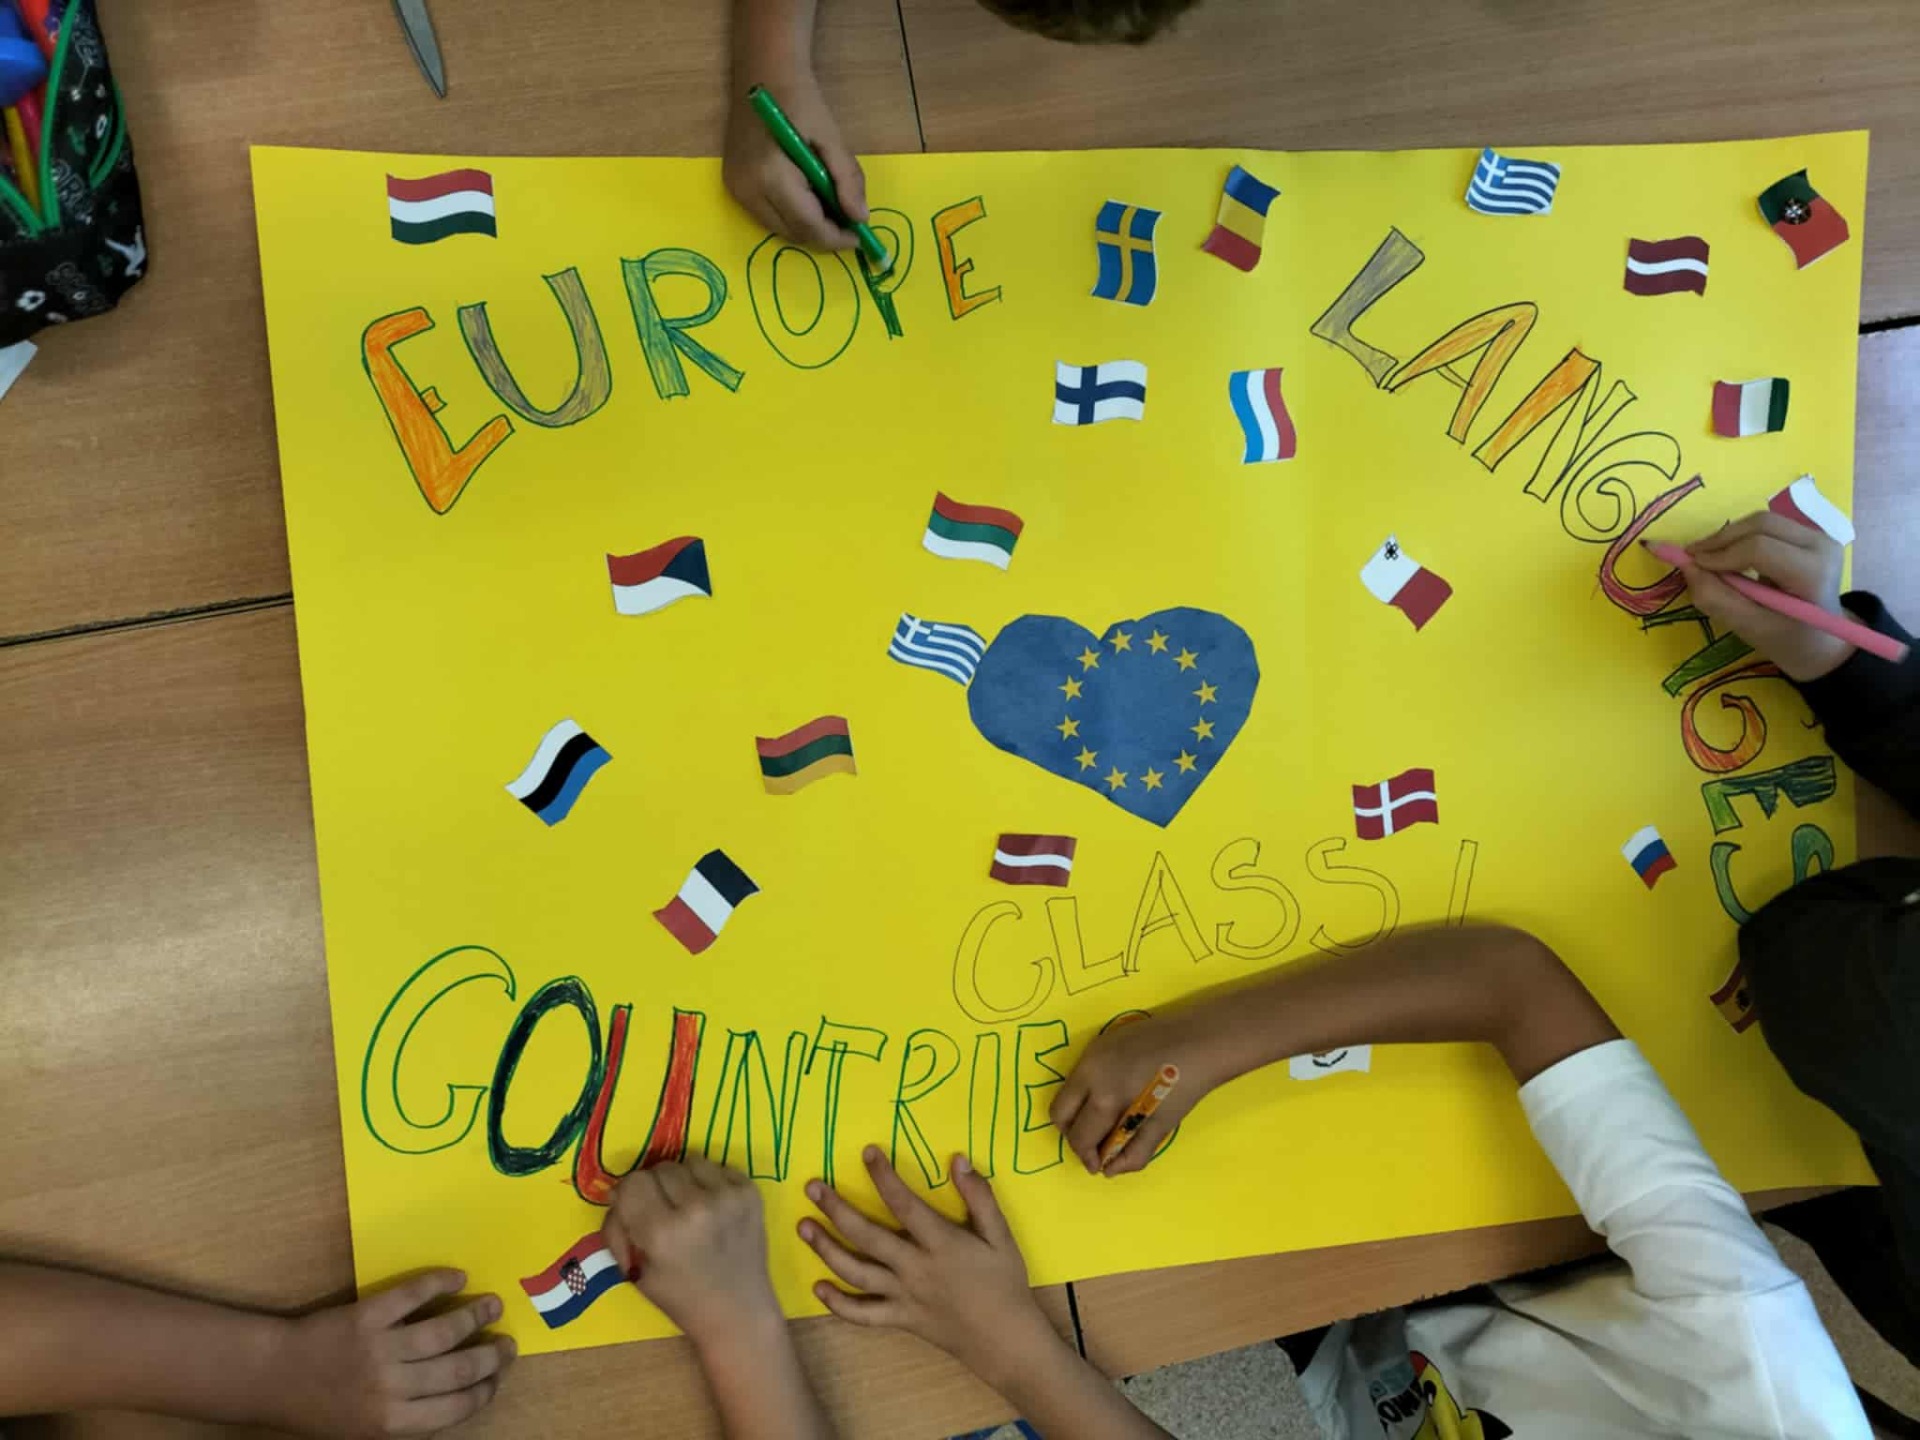 EUROPE
LANGUAGES
CLASS I
COUNTRIES